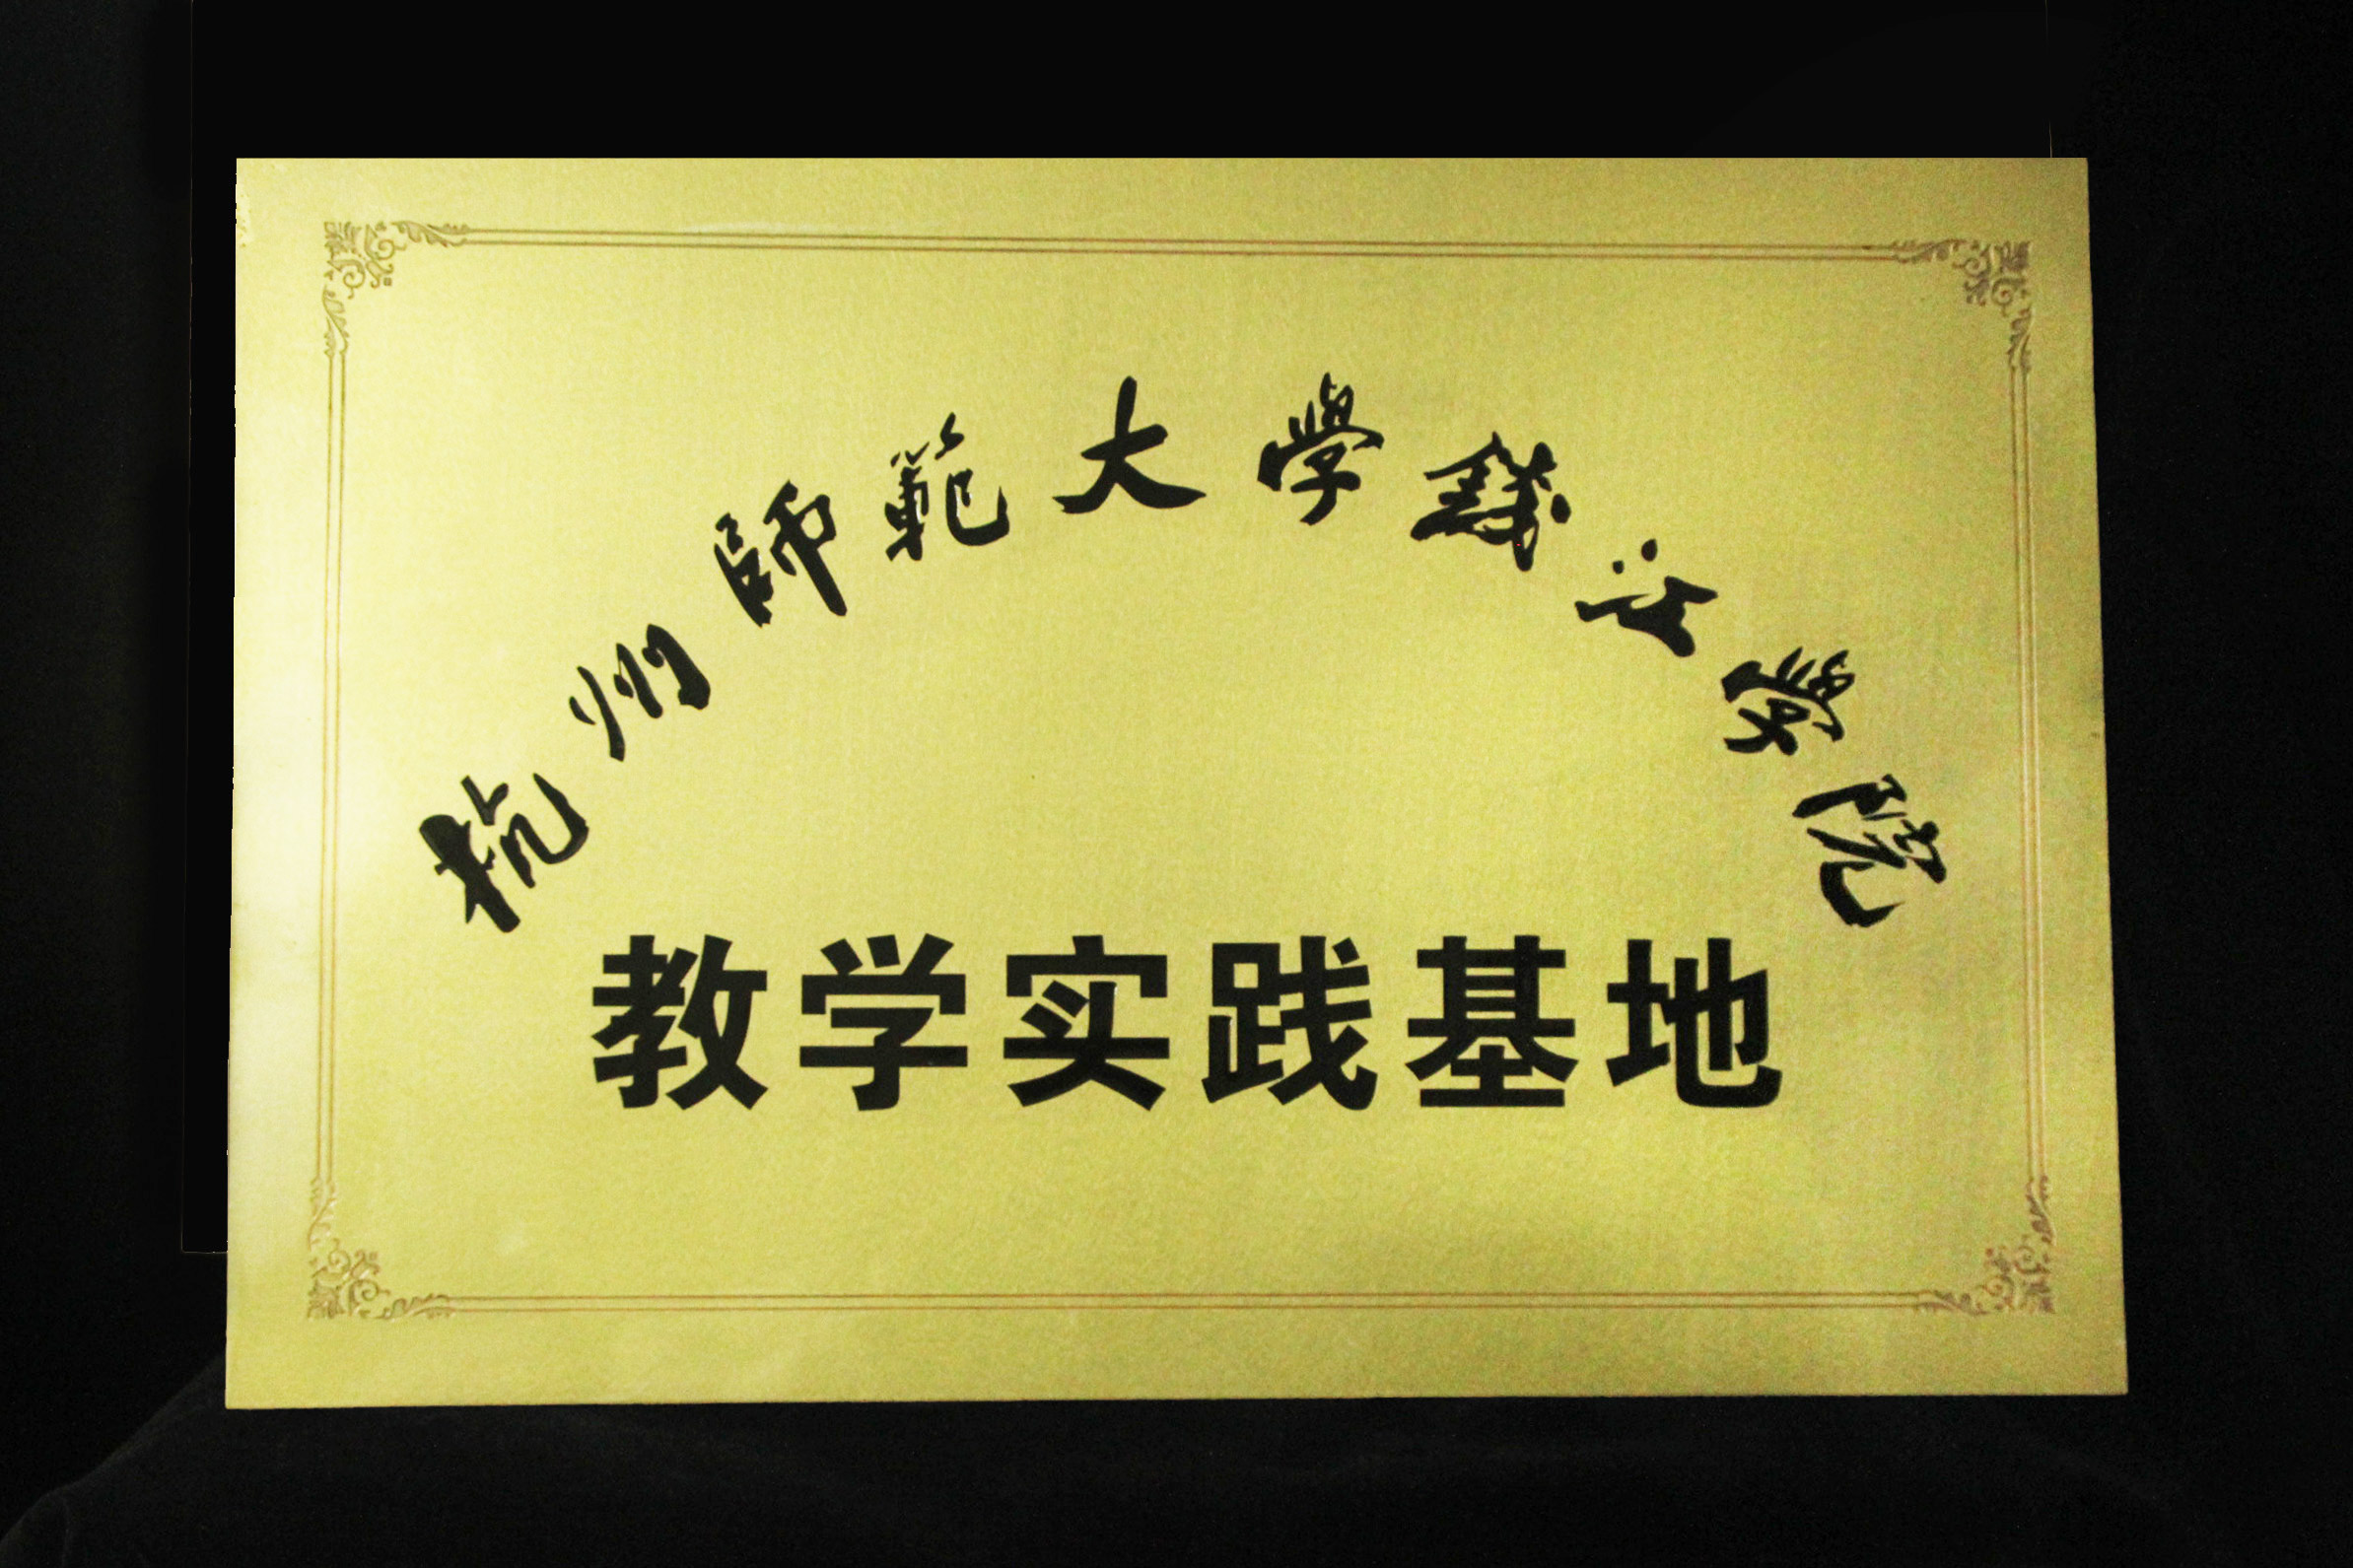 杭州師範大學錢江學院
教学实践基地